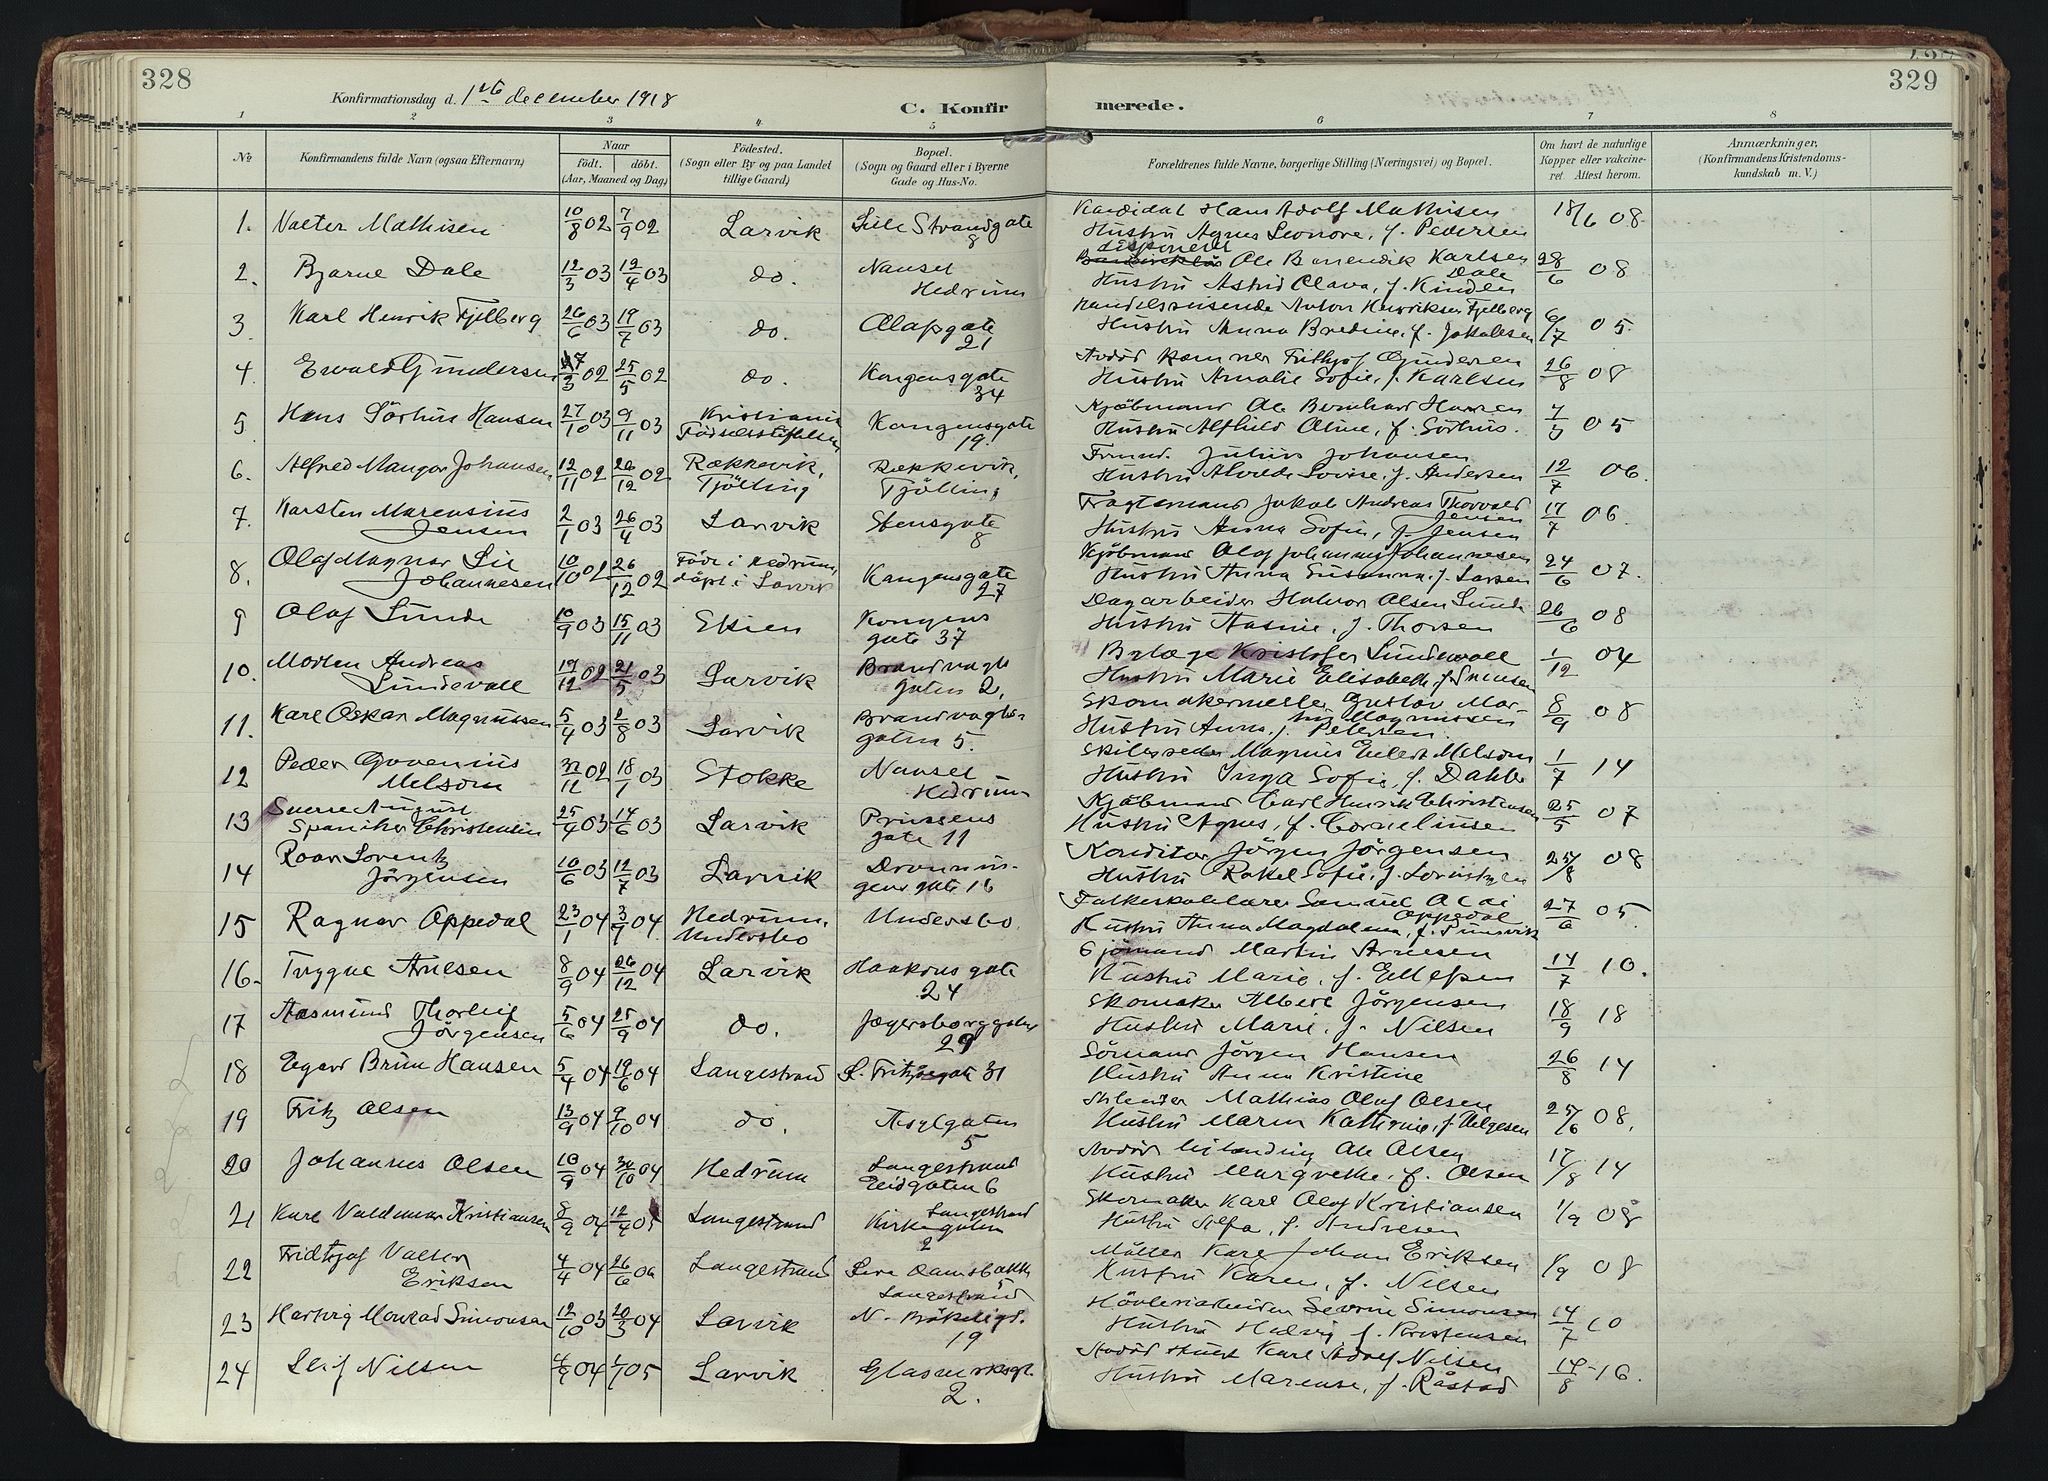 328
Konfirmationsdag d. 1ste december 1918
C. Konfirmerede.
329
1 2 3 4 5 6 7 8
No
Konfirmandens fulde Navn (ogsaa Efternavn)
Naar
født. døbt.
(Aar, Maaned og Dag)
Fødested.
(Sogn eller By og paa Landet
tillige Gaard)
Bopæl.
(Sogn og Gaard eller i Byerne
Gade og Hus-No.
Forældrenes fulde Navne, borgerlige Stilling (Næringsvei) og Bopæl.
Om havt de naturlige
Kopper eller vakcine-
ret. Attest herom.
Anmærkninger,
(Konfirmandens Kristendoms-
kundskab m. V.)
1. Valter Mathisen 10/8 02 7/9 02 Larvik Lille Strandgate 8 Hans Adolf Mathisen 18/6 08
Hustru Agnes Leonore, f. Pedersen
2. Bjarne Dale 12/3 03 19/4 03 do. Nanset Hedrum disponent Ole Karlsen Dale 28/6 08
Hustru Astrid Olava, f.
3. Karl Henrik Fjelberg 26/6 03 19/7 03 do. Olafsgate 21 Handelsreisende Anton Henriksen Fjelberg 6/7 05.
Hustru Anna Bredine, f. Jakobsen
4. Evald Gundersen 02 25/5 02 do. Kongensgate 34 Avdød kæmner Frithjof Gundersen 26/8 08
Hustru Amalie Sofie, f. Karlsen
5. Hans Sörhus Hansen 27/10 03 9/11 03 Kristiania Fødselsstiftelsen Kongensgate 19. Kjøbmand Ole Bernhard Hansen 05
Hustru Alfhild Oline, f. Sörhus.
6. Alfred Mangor Johansen 12/11 02 26/12 02 Rækkevik, Tjölling Rækkevik, Tjölling Julius Johansen 12/7 06.
Hustru Lovise, f. Andersen
7. Karsten Marensius Jensen 2/1 03 26/4 03 Larvik Stensgate 8 Fragtemand Jakob Andreas Thorvald Jensen 17/7 06.
Hustru Anna Sofie, f. Jensen
8. Olaf Magnar Lie Johannesen 10/10 02 26/12 02 Født i Hedrum, döpt i Larvik Kongensgate 27 Kjøbmand Olaf Johannesen 24/6 07.
Hustru Anna Susanna, f. Larsen
9 Olaf Lunde 10/9 03 15/11 03 Skien Kongens gate 37 Dagarbeider Halvor Olsen Lunde 26/6 08
Hustru Aasine, f. Thorsen
10. Morten Andreas Lundevall 19/12 02 21/5 03 Larvik Brandvagts gaten 2. Bylæge Kristofer Lundevall 1/12 04
Hustru Marie Elisabeth, f.
11. Karl Oskar Magnussen 5/4 03 2/8 03 Larvik Brandvagts- gaten 5. Skomakermester Gustav Magnussen 8/9 08
Hustru Anna, f. Petersen.
12 Peder Govenius Melsom 02 18/1 03 Stokke Nanset Hedrum Skibsreder Magnus Melsom 1/7 14
Hustru Inga Sofie, f. Dahler
13 Sverre August Christensen 25/4 03 14/6 03 Larvik Prinsens gate 11 Kjøbmand Carl Henrik Christensen 25/5 07
Hustru Agnes, f. Corneliussen
14 Roar Lorentz Jörgensen 10/6 03 12/7 03 Larvik Dronnin- gens gate 16 Konditor Jörgen Jörgensen 25/8 08
Hustru Rakel Sofie, f.
15 Ragnar Oppedal 23/1 04 3/9 04 Hedrum, Undersbo Undersbo Folkeskolelærer Samuel Oppedal 27/6 05.
Hustru Anna Magdalena, f.
16. Trygve Arnesen 8/9 04 26/12 04 Larvik Haakons gate 24 Sjömand Martin Arnesen 14/7 10.
Hustru Marie, f. Ellefsen
17 Aasmund Thorleif Jörgensen 5/6 04 25/9 04 do. Jegersborggaten 29 Skomaker Albert Jörgensen 18/9 18
Hustru Marie, f. Nilsen
18 Egard Brun Hansen 5/4 04 19/6 04 Langestrand L. Fritzögate 31 Sömand Jörgen Hansen 26/8 14
Hustru Anna Kristine
19 Fritz Olsen 13/9 04 9/10 04 do. Asylgaten 5 Mathias Olaf Olsen 25/6 08.
Hustru Maren Kathrine, f. Helgesen
20 Johannes Olsen 10/9 04 30/10 04 Hedrum Langestrand Eidgaten 6 Avdød Ole Olsen 17/8 14
Hustru Margrethe, f. Olsen
21 Karl Valdemar Kristiansen 8/9 04 12/4 05 Langestrand Langestrand Kirkegaten 2 Skomaker Karl Olaf Kristiansen 1/9 08
Hustru Alfa, f. Andresen
22 Fridtjof Valter Eriksen 4/4 04 26/6 Langestrand 5 Langestrand Möller Karl Johan Eriksen 1/9 08
Hustru Karen, f. Nilsen
23 Hartvig Monrad Simonsen 12/10 03 20/3 04 Larvik N. Bökeligt. 19 Hövleriarbeider Severin Simonsen 14/7 10
Hustru Hedvig, f. Kristensen
24 Leif Nilsen 4/9 04 05 Larvik Glasverksgt. 2. Avdød Karl Adolf Nilsen 14/8 - 16.
Hustru Marense, f. Råstad